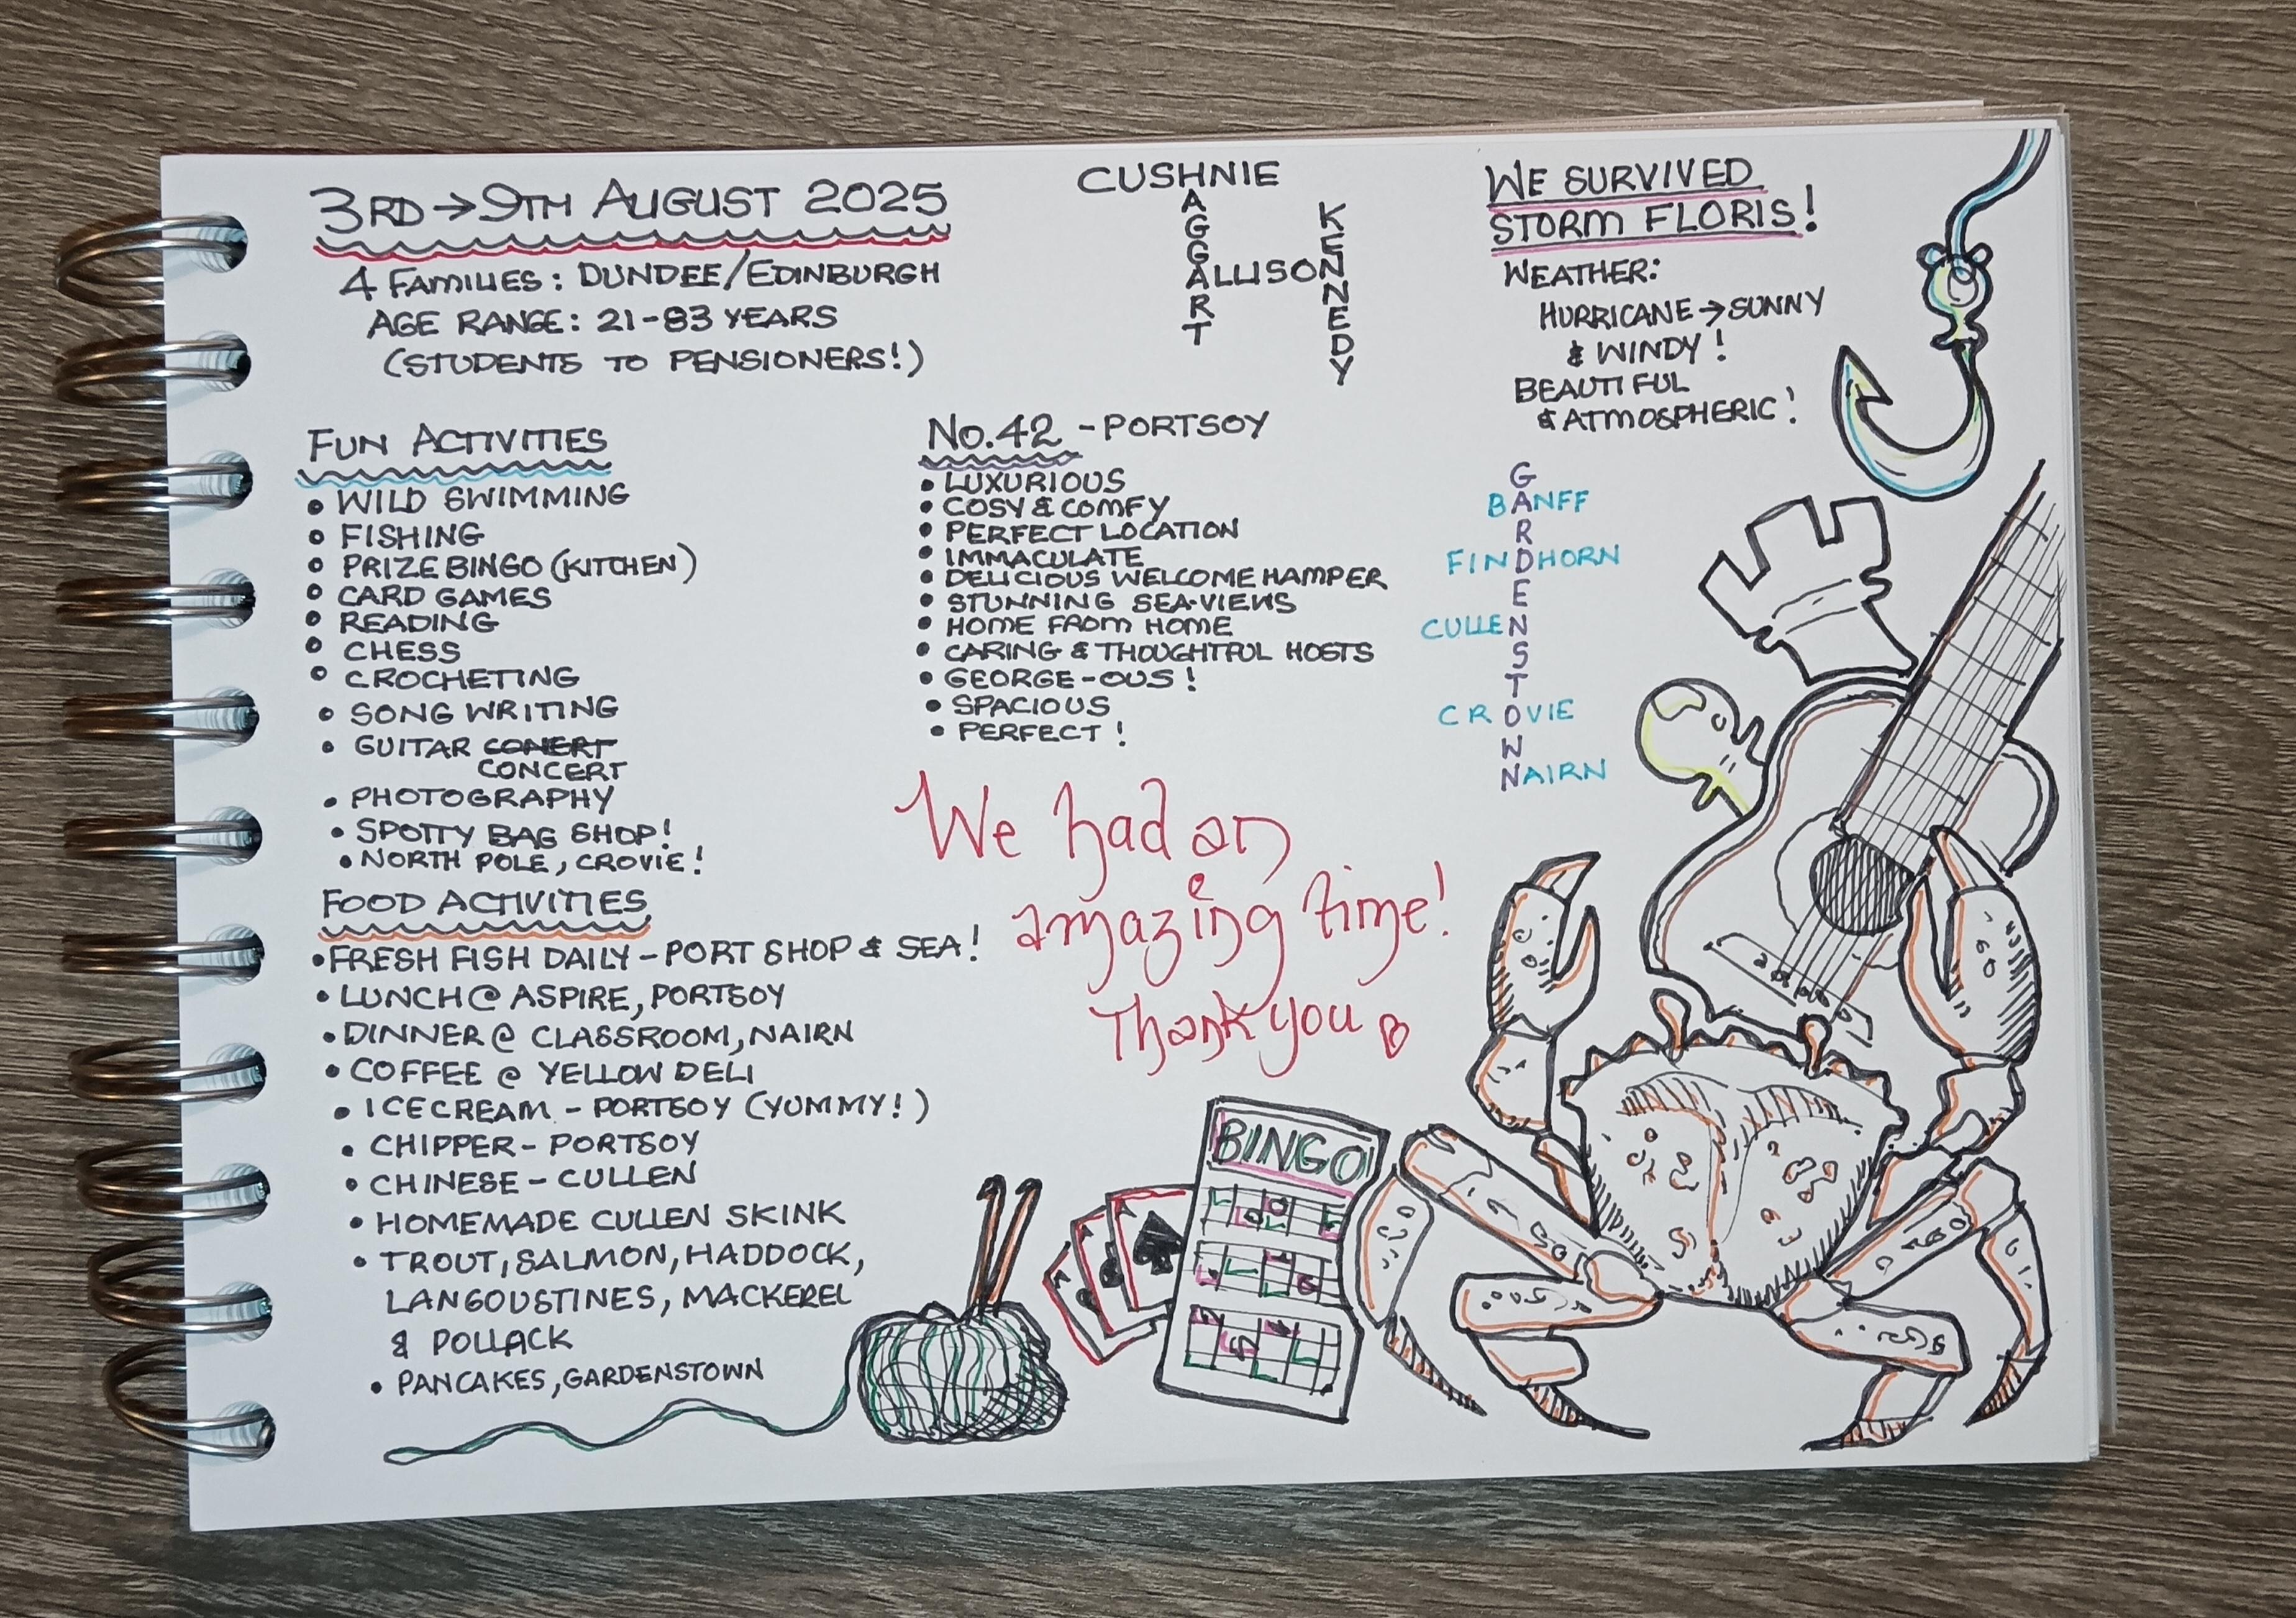 3RD → 9TH AUGUST 2025
4 FAMILIES: DUNDEE/EDINBURGH
AGE RANGE: 21-83 YEARS
(STUDENTS TO PENSIONERS!)
CUSHNIE
HAGGART
ALLISON
KENNEDY
WE SURVIVED
STORM FLORIS!
WEATHER:
HURRICANE → SUNNY
& WINDY!
BEAUTIFUL
& ATMOSPHERIC!
FUN ACTIVITIES
• WILD SWIMMING
• FISHING
• PRIZE BINGO (KITCHEN)
• CARD GAMES
• READING
• CHESS
• CROCHETING
• SONG WRITING
• GUITAR CONERT
CONCERT
• PHOTOGRAPHY
• SPOTTY BAG SHOP!
• NORTH POLE, CROVIE!
FOOD ACTIVITIES
• FRESH FISH DAILY - PORT SHOP & SEA!
• LUNCH @ ASPIRE, PORTSOY
• DINNER @ CLASSROOM, NAIRN
• COFFEE @ YELLOW DELI
• ICECREAM - PORTSOY (YUMMY!)
• CHIPPER - PORTSOY
• CHINESE - CULLEN
• HOMEMADE CULLEN SKINK
• TROUT, SALMON, HADDOCK,
LANGOUSTINES, MACKEREL
& POLLACK
• PANCAKES, GARDENSTOWN
No.42 - PORTSOY
• LUXURIOUS
• COSY & COMFY
• PERFECT LOCATION
• IMMACULATE
• DELICIOUS WELCOME HAMPER
• STUNNING SEA-VIEWS
• HOME FROM HOME
• CARING & THOUGHTFUL HOSTS
• GEORGE-OUS!
• SPACIOUS
• PERFECT!
GARDENSTOWN
BANFF
FINDHORN
CULLEN
CROVIE
NAIRN
We had an
amazing time!
Thank you
BINGO